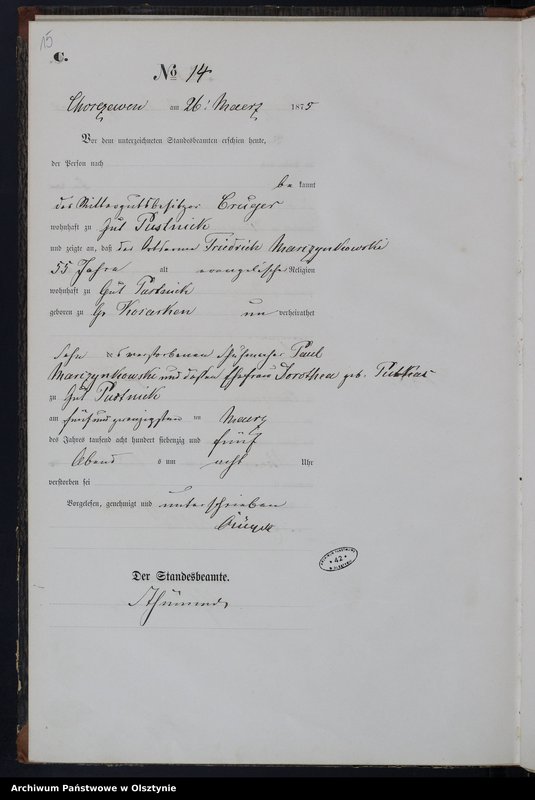 15
C.
No 14
am 26. Maerz 1875
Vor dem unterzeichneten Standesbeamten erschien heute,
der Person nach
be kannt
der Rittergutsbesitzer Crueger
wohnhaft zu Gut Pustnick
und zeigte an, daß der Ortsarme Friedrich
55 Jahre alt evangelischer Religion
wohnhaft zu Gut Pustnick
geboren zu Gr un verheirathet
Sohn des verstorbenen Schuhmacher Paul
und dessen Ehefrau Dorothea geb.
zu Gut Pustnick
am fünfundzwanzigsten ten Maerz
des Jahres tausend acht hundert siebenzig und fünf
Abends um acht Uhr
verstorben sei
Vorgelesen, genehmigt und unterschrieben
Crüger
Der Standesbeamte.
42
Archiwum Państwowe w Olsztynie